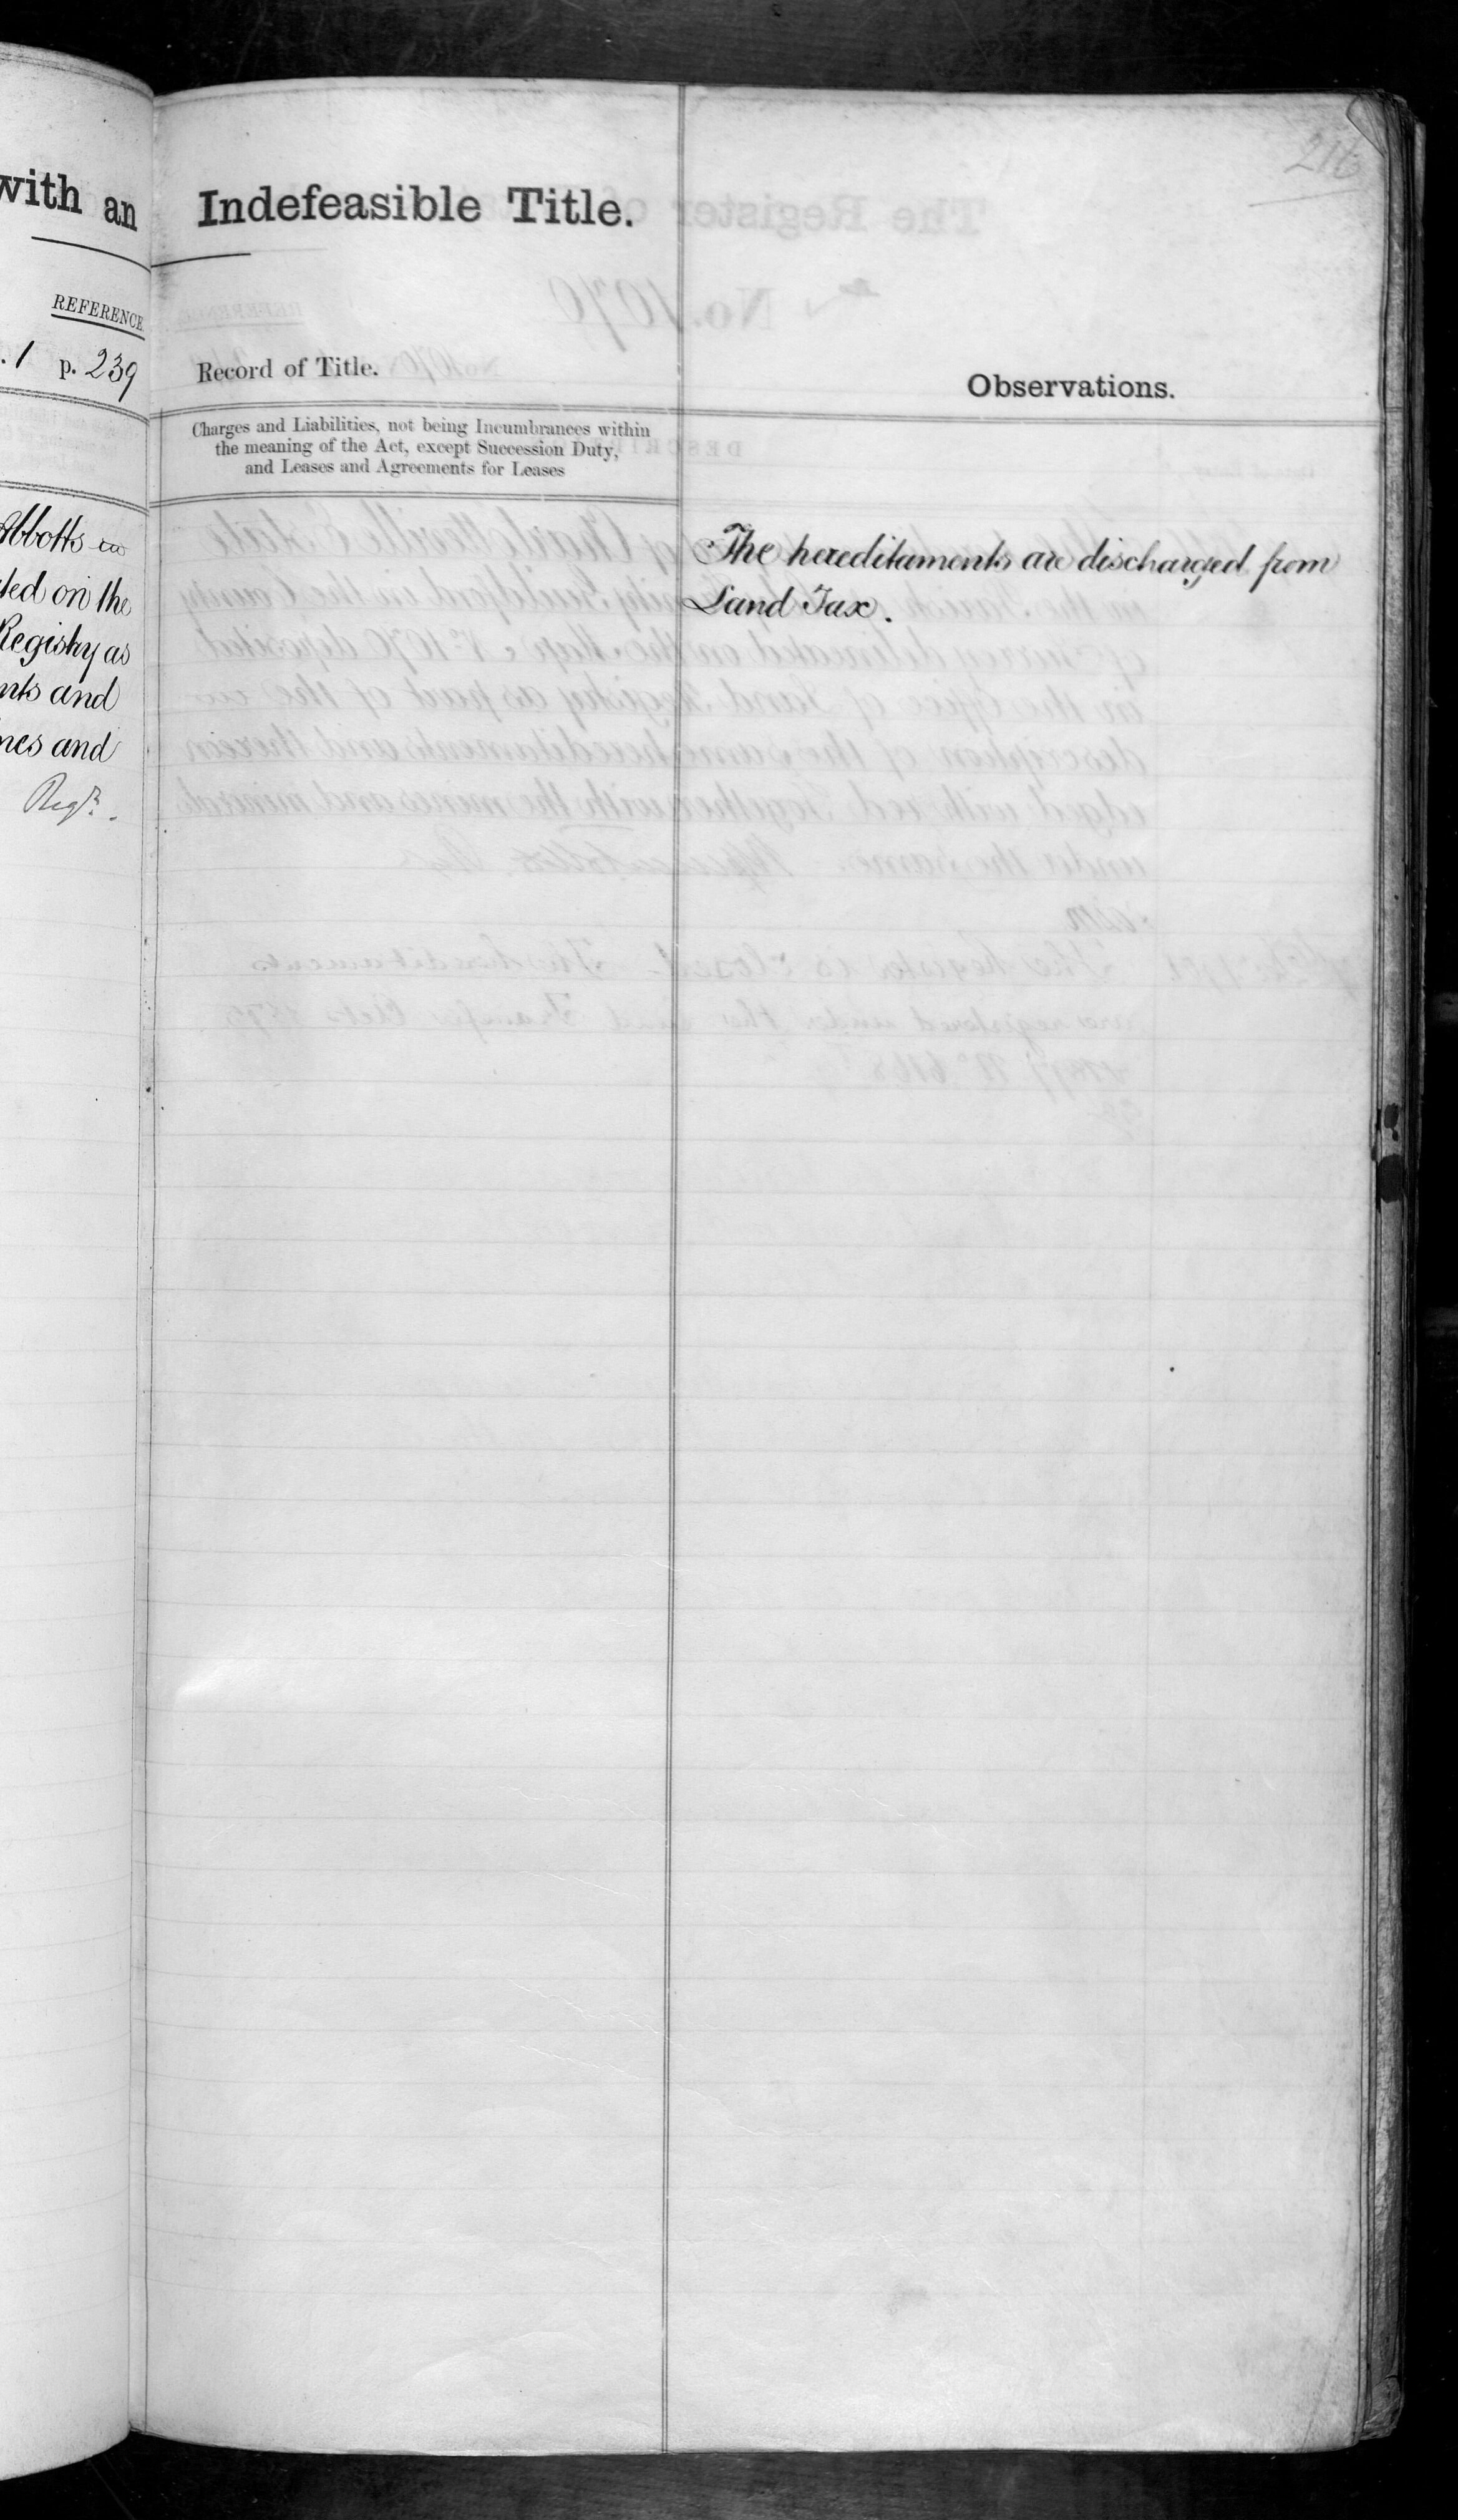 with an
REFERENCE
. 1 p. 239
Abbotts
ted on the
Registry as
nts and
nes and
Regr.
216
Indefeasible Title.
Record of Title.
Observations.
Charges and Liabilities, not being Incumbrances within
the meaning of the Act, except Succession Duty,
and Leases and Agreements for Leases
The hereditaments are discharged from
Land Tax.